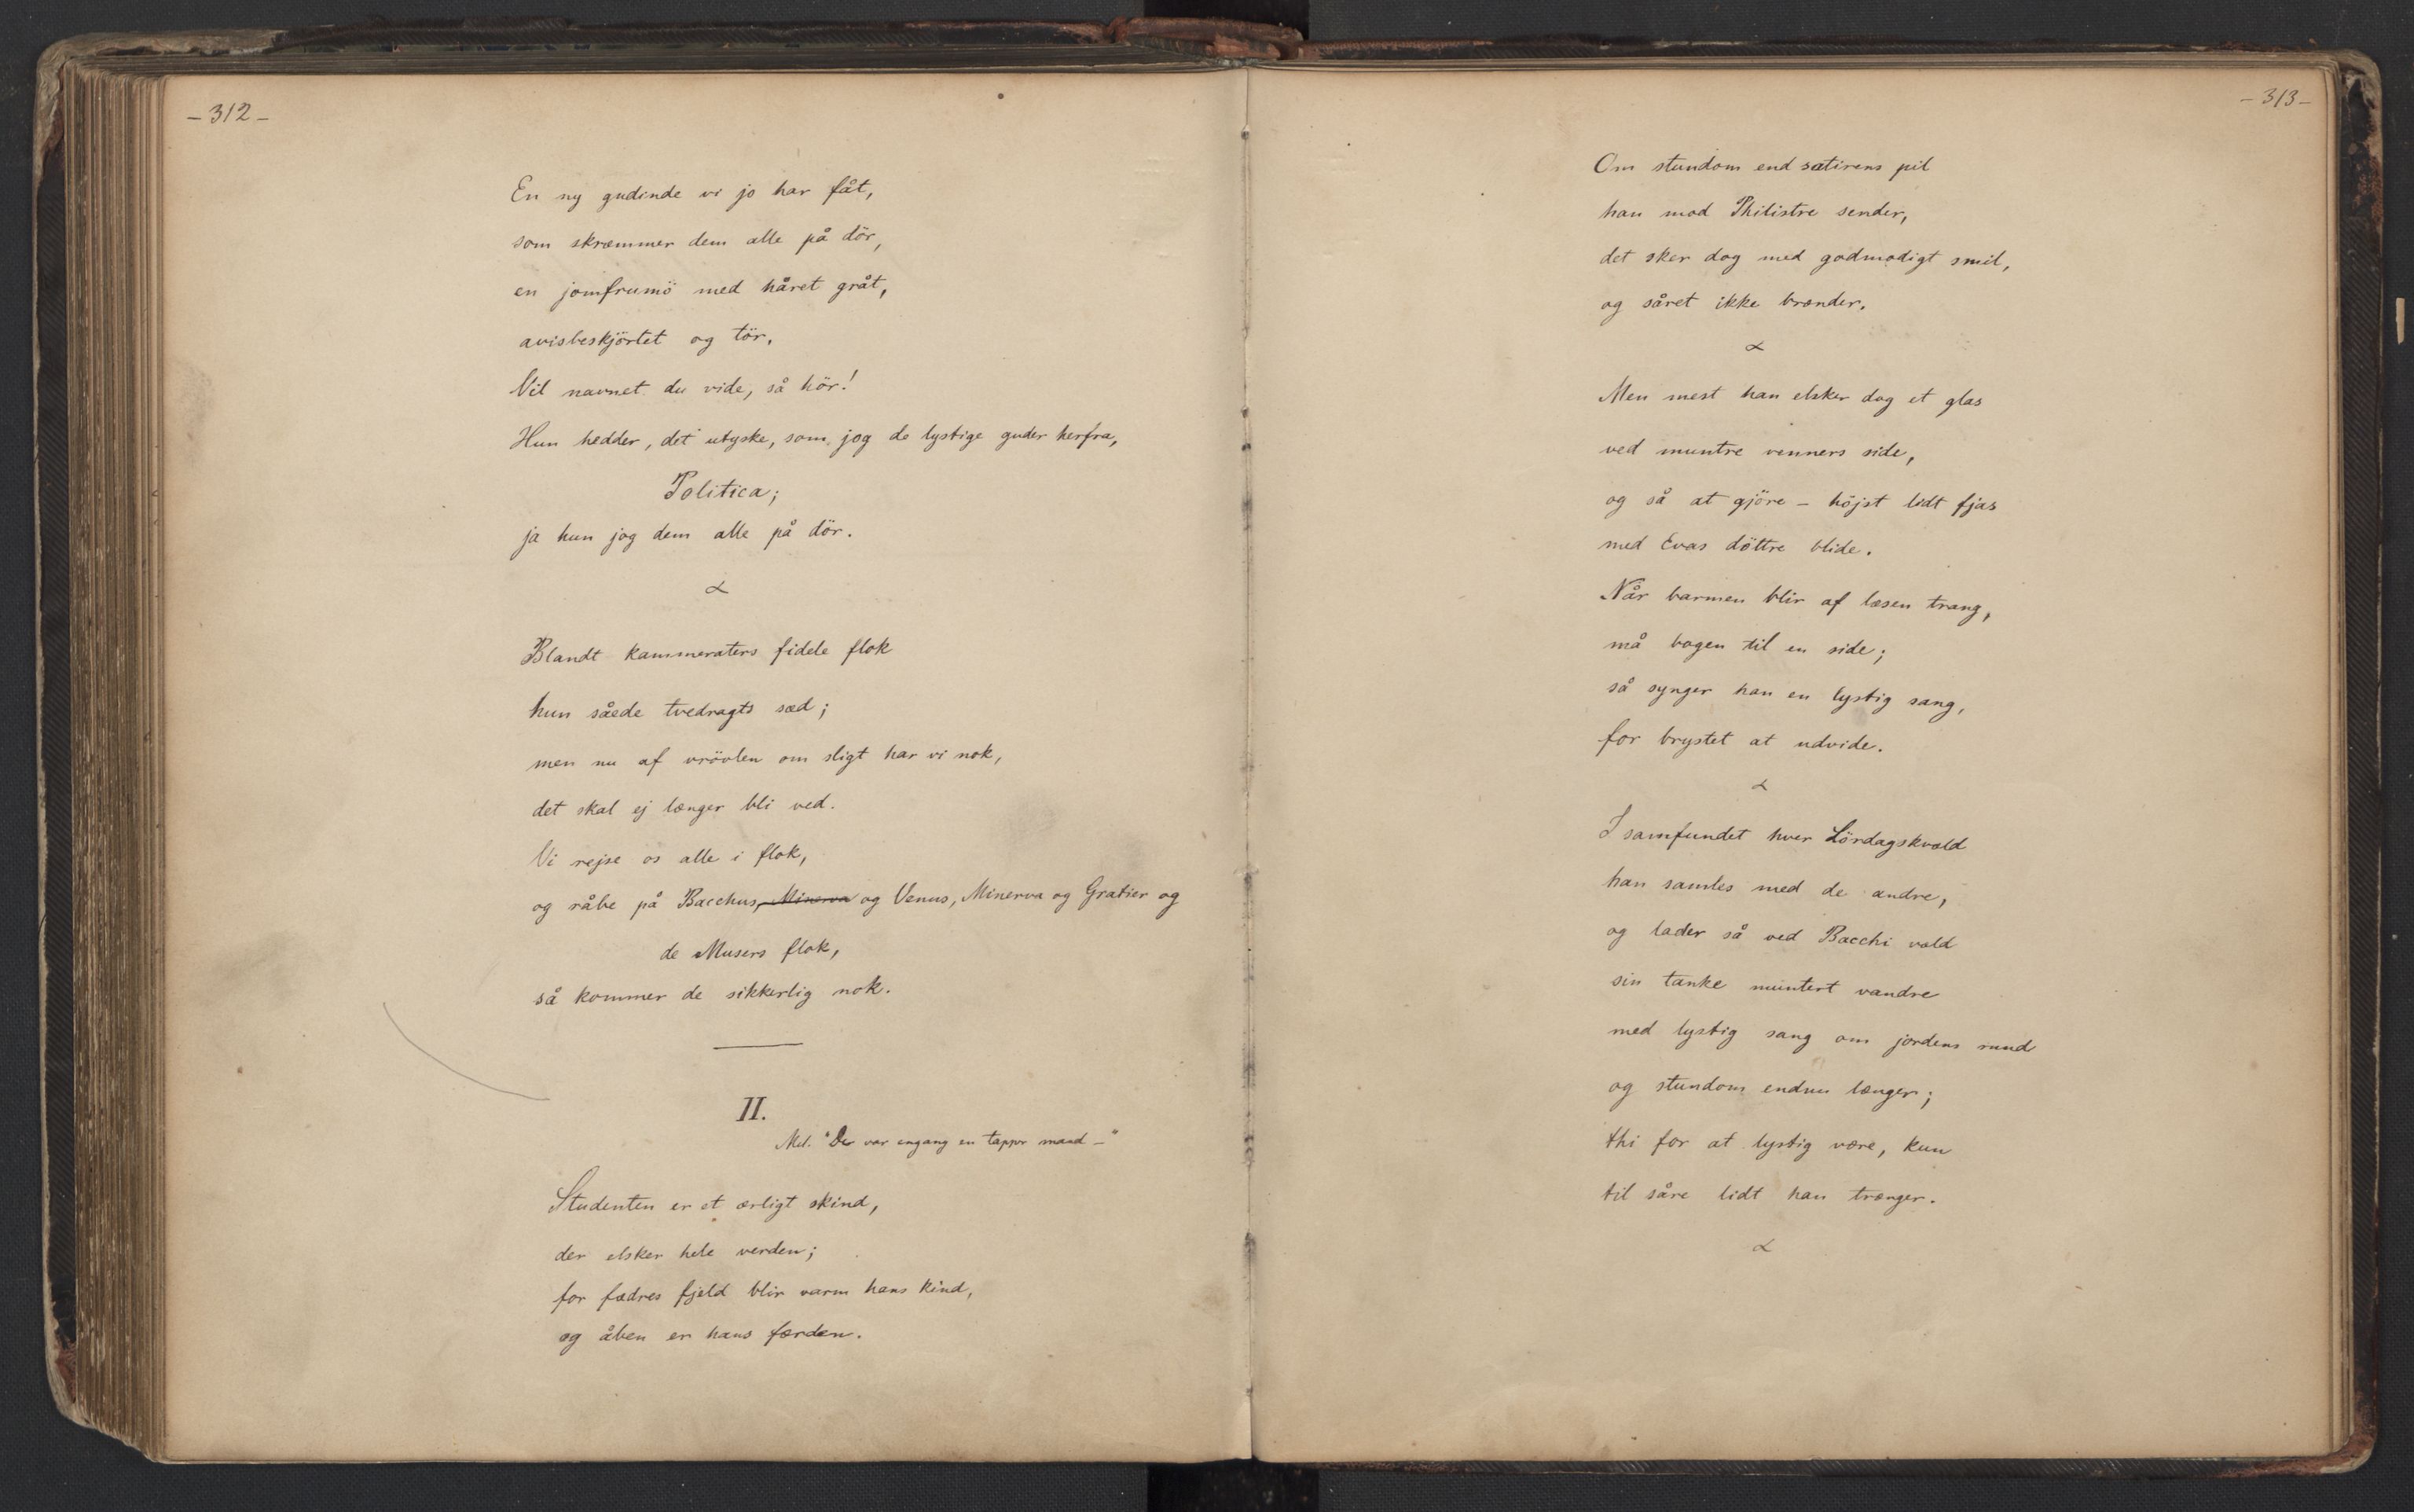 – 312 –
En ny gudinde vi jo har fåt,
som skræmmer dem alle på dör,
en jomfrumö med håret gråt,
avisbeskjörtet og tör.
Vil navnet du vide, så hör!
Hun hedder, det utyske, som jog de lystige guder herfra,
Politica;
ja hun jog dem alle på dör.
Blandt kammeraters fidele flok
hun såede tvedragts sæd;
men nu af vrövlen om sligt har vi nok,
det skal ej længer bli ved.
Vi rejse os alle i flok,
og råbe på Bacchus, Minerva og Venus, Minerva og Gratier og
de Musers flok,
så kommer de sikkerlig nok.
II.
Mel. "Der var engang en tapper mand –"
Studenten er et ærligt skind,
der elsker hele verden;
for fædres fjeld blir varm hans kind,
og åben er hans færden.
– 313 –
Om stundom end satirens pil
han mod Philistre sender,
det sker dog med godmodigt smil,
og såret ikke brænder.
Men mest han elsker dog et glas
ved muntre venners side,
og så at gjöre – höjst lidt fjas
med Evas döttre blide.
Når barmen blir af læsen trang,
må bogen til en side;
så synger han en lystig sang,
for brystet at udvide.
I samfundet hver Lördagskvæld
han samles med de andre,
og lader så ved Bacchi væld
sin tanke muntert vandre
med lystig sang om jordens rund
og stundom endnu længer;
thi for at lystig være, kun
til såre lidt han trænger.